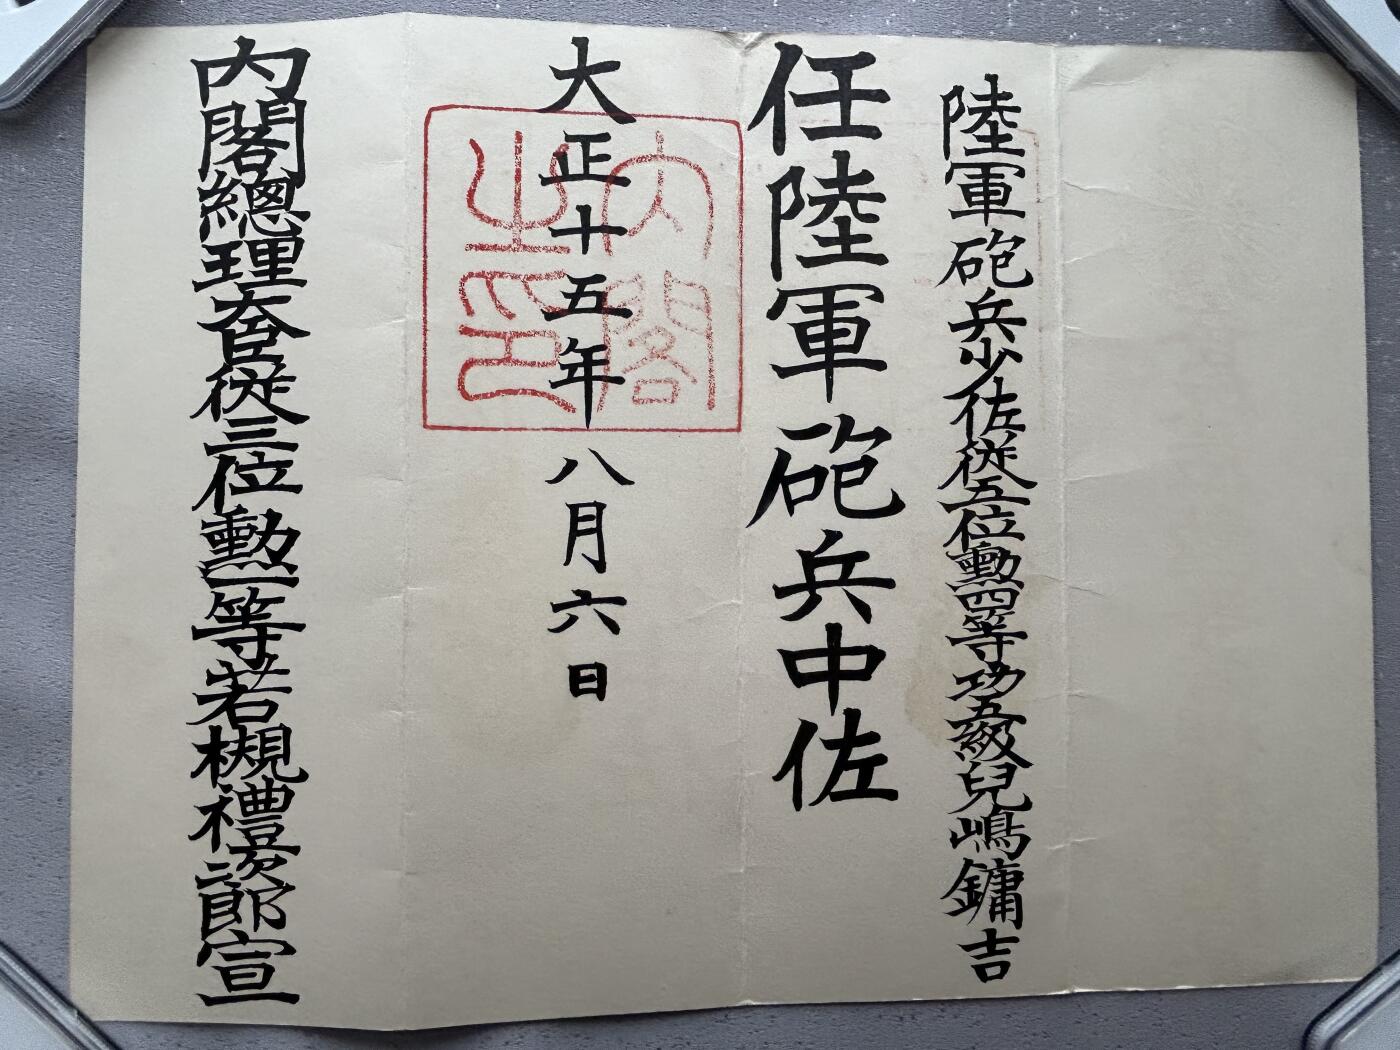 陸軍砲兵少佐從五位勲四等功五級兒嶋鏞吉
任陸軍砲兵中佐
大正十五年八月六日
内閣之印
内閣總理大臣從三位勲一等若槻禮次郎宣